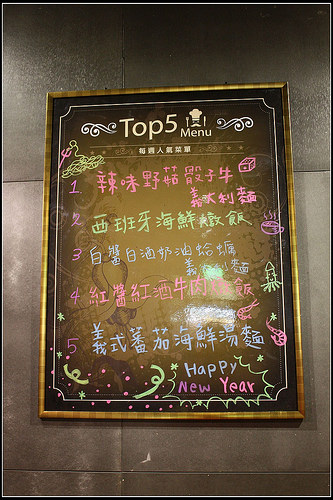 Top5 Menu
每週人氣菜單
1 辣味野菇骰子牛
義大利麵
2 西班牙海鮮燉飯
3 白醬白酒奶油蛤蠣
義大利麵
4 紅醬紅酒牛肉燉飯
5 義式蕃茄海鮮湯麵
Happy
New Year